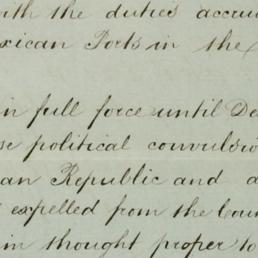 with the duties accru
exican Ports in the
in full force until De
se political convulsio
an Republic and a
expelled from the Coun
in thought proper to